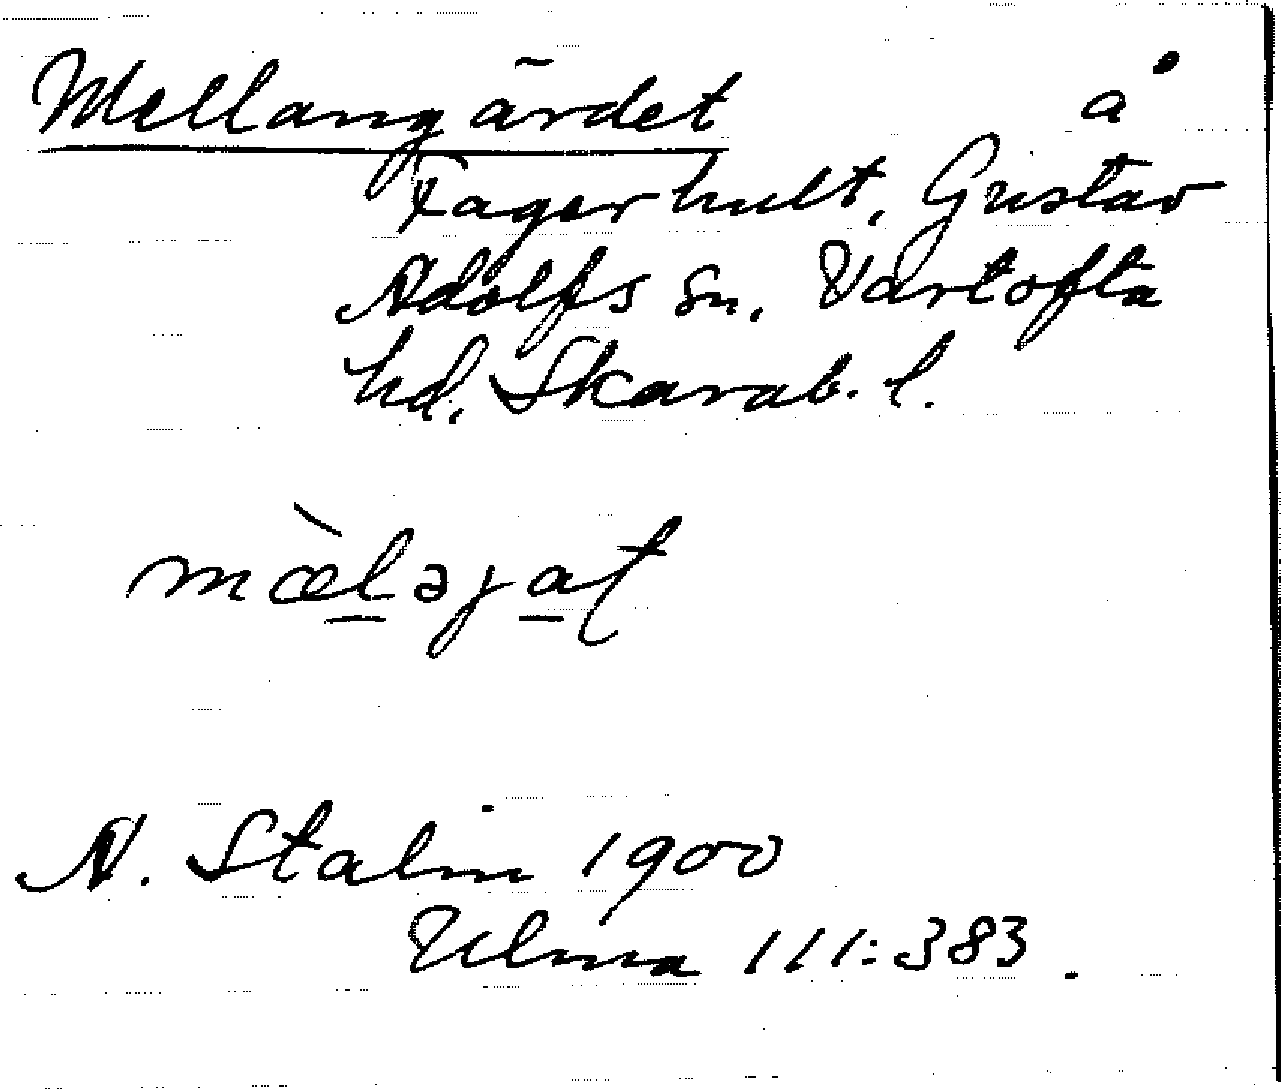 Mellangärdet å
Fagerhult, Gustav
Adolfs sn. Vartofta
hd. Skarab. l.
mæ̀ləjat
N. Stalin 1900
Ulma 111:383.